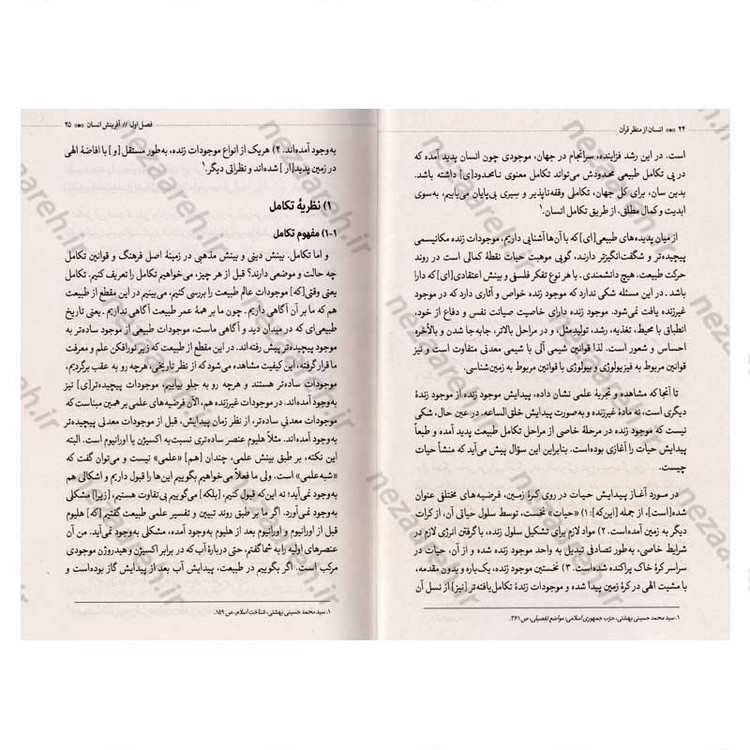 ۲۴ انسان از منظر قرآن
است. در این رشد فزاینده، سرانجام در جهان، موجودی چون انسان پدید آمد که
در پی تکامل طبیعی محدودش می‌تواند تکامل معنوی نامحدود[ی] داشته باشد.
بدین سان، برای کل جهان، تکاملی وقفه‌ناپذیر و سیری بی‌پایان می‌یابیم، به‌سوی
ابدیت و کمال مطلق، از طریق تکامل انسان.¹
از میان پدیده‌های طبیعی[ای] که با آن‌ها آشنایی داریم، موجودات زنده مکانیسمی
پیچیده‌تر و شگفت‌انگیزتر دارند. گویی موهبت حیات نقطهٔ کمالی است در روند
حرکت طبیعت. هیچ دانشمندی ـ با هر نوع تفکر فلسفی و بینش اعتقادی[ای] که دارا
باشد ـ در این مسئله شکی ندارد که موجود زنده خواص و آثاری دارد که در موجود
غیرزنده یافت نمی‌شود. موجود زنده دارای خاصیت صیانت نفس و دفاع از خود،
انطباق با محیط، تغذیه، رشد، تولیدمثل، و در مراحل بالاتر، جابه‌جا شدن و بالأخره
احساس و شعور است. لذا قوانین شیمی آلی با شیمی معدنی متفاوت است و نیز
قوانین مربوط به فیزیولوژی و بیولوژی با قوانین مربوط به زمین‌شناسی.
تا آنجا که مشاهده و تجربهٔ علمی نشان داده، پیدایش موجود زنده از موجود زندهٔ
دیگری است، نه مادهٔ غیرزنده و به‌صورت پیدایش خلق‌الساعه. در عین حال، شکی
نیست که موجود زنده در مرحلهٔ خاصی از مراحل تکامل طبیعت پدید آمده و طبعاً
پیدایش حیات را آغازی بوده‌است. بنابراین این سؤال پیش می‌آید که منشأ حیات
چیست.
در مورد آغاز پیدایش حیات در روی کرهٔ زمین، فرضیه‌های مختلفی عنوان
شده[است]، از جمله [این‌که]: ۱) «حیات» نخست، توسط سلول حیاتی آن، از کرات
دیگر به زمین آمده است. ۲) مواد لازم برای تشکیل سلول زنده، با گرفتن انرژی لازم در
شرایط خاصی، به‌طور تصادفی تبدیل به واحد موجود زنده شده و از آن، حیات در
سراسر کرهٔ خاک پراکنده شده‌است. ۳) نخستین موجود زنده، یک بار و به‌طور خاص
با مشیت الهی در کرهٔ زمین پیدا شده و موجودات زندهٔ تکامل‌یافته‌تر [نیز] از نسل آن
۱. سید محمد حسینی بهشتی، حزب جمهوری اسلامی: مواضع تفصیلی، ص ۳۶۱.
فصل اول // آفرینش انسان ۲۵
به‌وجود آمده‌اند. ۲) هریک از انواع موجودات زنده، به‌طور مستقل [و] با افاضهٔ الهی
در زمین پدید[ار] شده‌اند و نظراتی دیگر.¹
۱) نظریهٔ تکامل
۱-۱) مفهوم تکامل
و اما تکامل. بینش دینی و بینش مذهبی در زمینهٔ اصل فرهنگ و قوانین تکامل
چه حالت و موضعی دارند؟ قبل از هر چیز، می‌خواهیم تکامل را تعریف کنیم. تکامل
یعنی وقتی [که] موجودات عالم طبیعت را بررسی کنیم، می‌بینیم در این مقطع از طبیعت
هم که ما بر آن آگاهی داریم. چون ما بر همهٔ عمر طبیعت آگاهی نداریم. یعنی تاریخ
طبیعی‌ای که در میدان دید و آگاهی ماست، موجودات طبیعی از موجود ساده‌تر به
موجود پیچیده‌تر پیش رفته‌اند. در این مقطع از طبیعت که زیر نورافکن علم و معرفت
ما قرار گرفته، این کیفیت مشاهده می‌شود که از نظر تاریخی، هرچه رو به عقب برگردیم،
موجودات ساده‌تر هستند و هرچه رو به جلو بیاییم، موجودات پیچیده‌تر[ی] نیز
به‌وجود آمده‌اند. در موجودات غیرزنده هم، الآن فرضیه‌های علمی بر همین مبناست که
موجودات معدنی ساده‌تر، از نظر زمان پیدایش، قبل از موجودات معدنی پیچیده‌تر
به‌وجود آمده‌اند. مثلاً هلیوم عنصر ساده‌تری نسبت‌به اکسیژن یا اورانیوم است. البته
این نکته، بر طبق بینش علمی، چندان [هم] «علمی» نیست و می‌توان گفت که
«شبه‌علمی» است. ولی ما فعلاً می‌خواهیم بگوییم این‌ها را قبول داریم و اشکالی هم
به‌وجود نمی‌آید؛ نه این‌که قبول کنیم، [بلکه] می‌گوییم بی‌تفاوت هستیم، [زیرا] مشکلی
به‌وجود نمی‌آورد. اگر ما بر طبق روند تبیین و تفسیر علمی طبیعت گفتیم [که] هلیوم
قبل از اورانیوم و اورانیوم بعد از هلیوم به‌وجود آمده، مشکلی به‌وجود نمی‌آید. من آن
عنصرهای اولیه را به شما گفتم، حتی دربارهٔ آب که در برابر اکسیژن و هیدروژن موجودی
مرکب است. اگر بگوییم در طبیعت، پیدایش آب بعد از پیدایش گاز بوده است و
۱. سید محمد حسینی بهشتی، شناخت اسلام، ص ۱۵۹.
nezaareh.ir